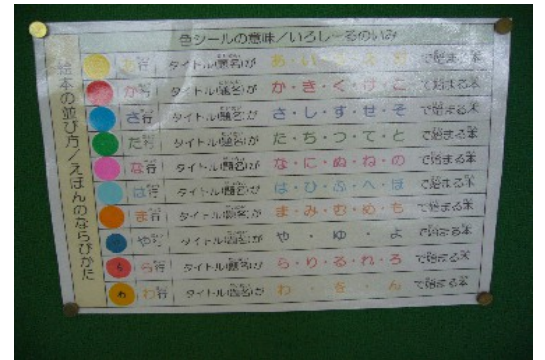 色シールの意味／いろしーるのいみ
絵本の並び方／えほんのならびかた
あ行 タイトル(題名)が あ・い・う・え・お で始まる本
か行 タイトル(題名)が か・き・く・け・こ で始まる本
さ行 タイトル(題名)が さ・し・す・せ・そ で始まる本
た行 タイトル(題名)が た・ち・つ・て・と で始まる本
な行 タイトル(題名)が な・に・ぬ・ね・の で始まる本
は行 タイトル(題名)が は・ひ・ふ・へ・ほ で始まる本
ま行 タイトル(題名)が ま・み・む・め・も で始まる本
や行 タイトル(題名)が や・ゆ・よ で始まる本
ら ら行 タイトル(題名)が ら・り・る・れ・ろ で始まる本
わ わ行 タイトル(題名)が わ・を・ん で始まる本